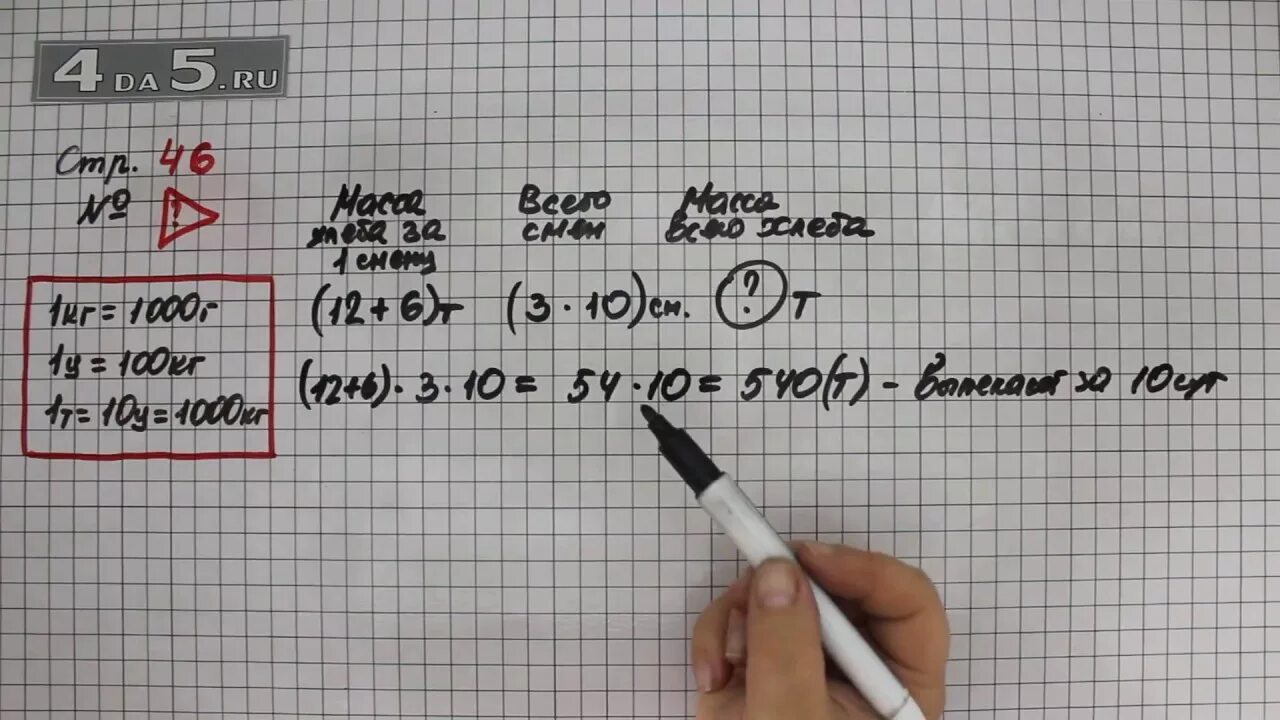 4DA5.RU
Стр. 46
№ !
Масса хлеба за 1 смену
Всего смен
Масса всего хлеба
1кг = 1000г
1ц = 100кг
1т = 10ц = 1000кг
(12 + 6)т (3 · 10)см. ? т
(12+6) · 3 · 10 = 54 · 10 = 540(т) - выпекают за 10 сут